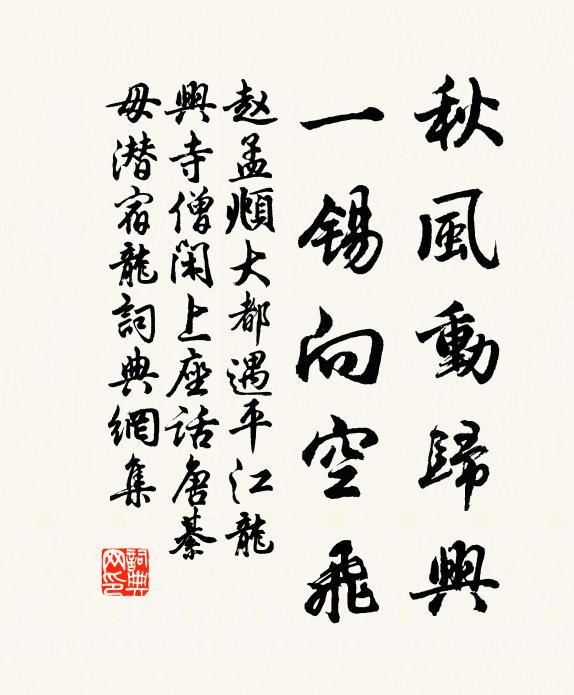 秋風動歸興
一錫向空飛
趙孟頫大都遇平江龍
興寺僧閑上座話唐綦
毋潛宿龍詞典網集
詞典网印